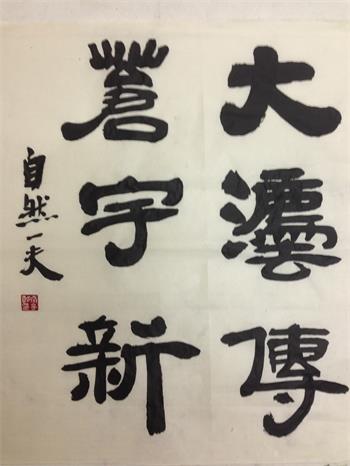 大灋傳
蒼宇新
自然一夫